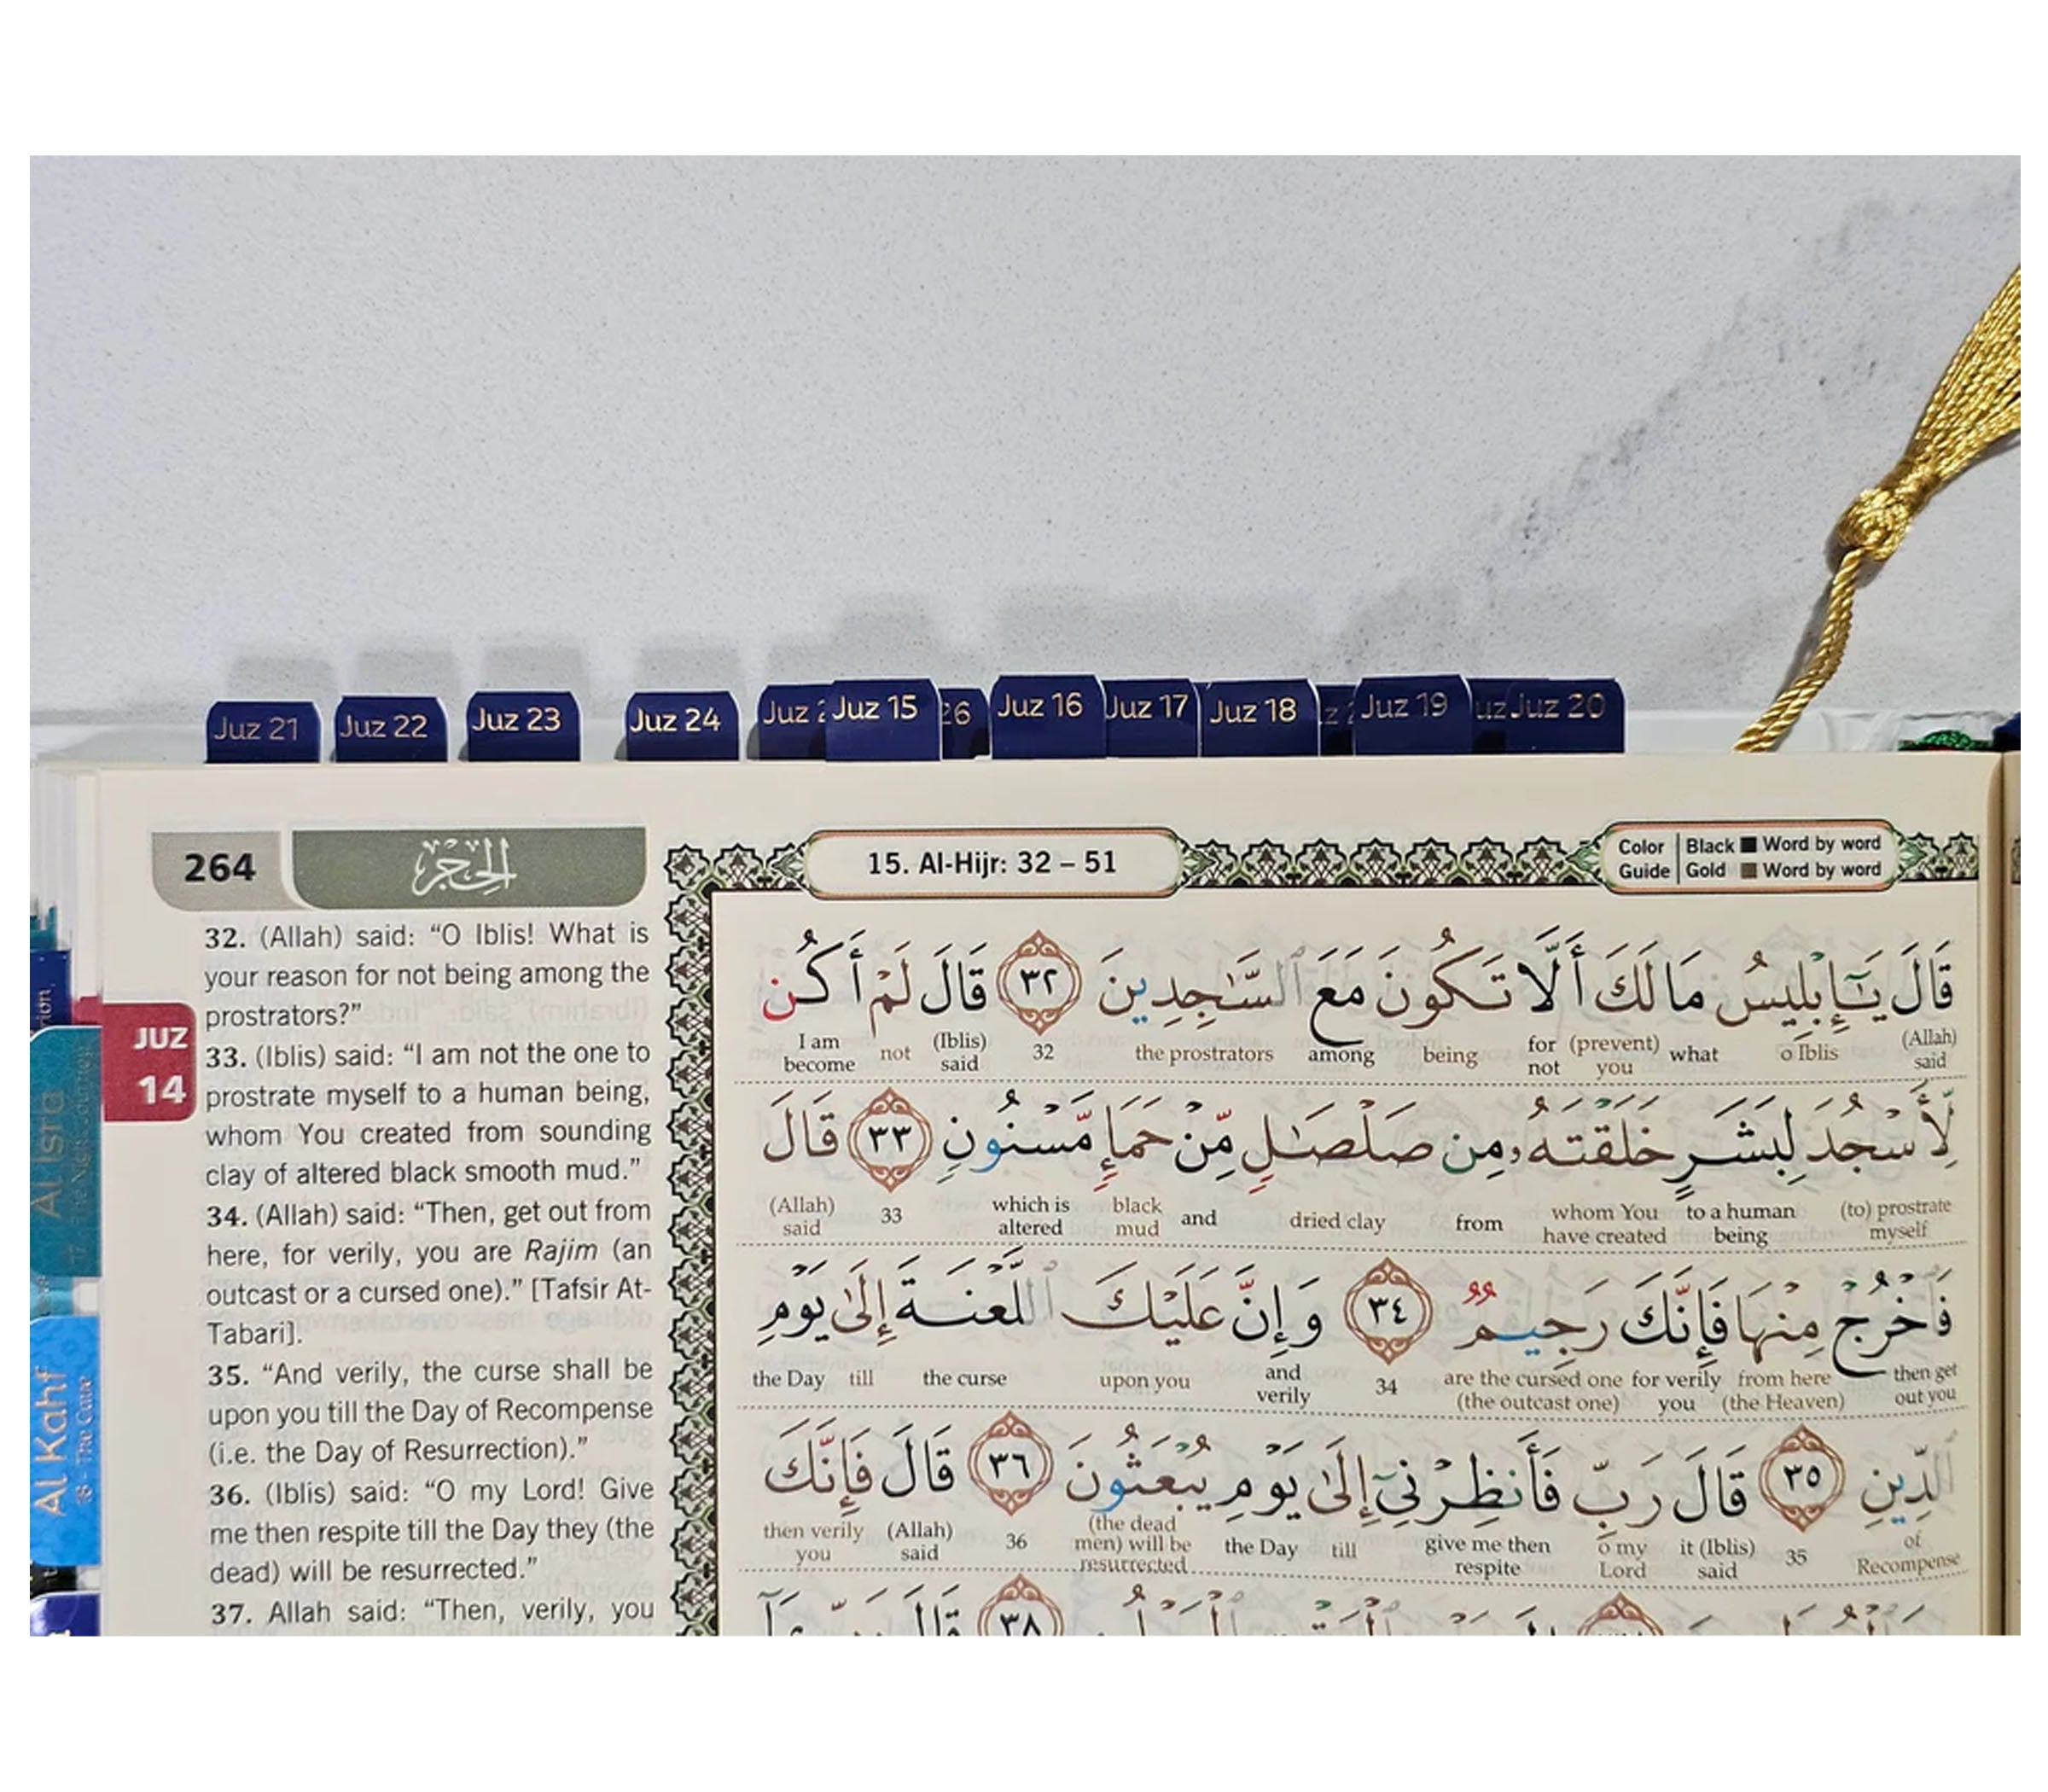 Juz 21
Juz 22
Juz 23
Juz 24
Juz
Juz 15
26
Juz 16
Juz 17
Juz 18
Juz 19
Juz 20
264
الحجر
15. Al-Hijr: 32 – 51
Color Guide
Black Word by word
Gold Word by word
JUZ
14
Al Isra
17 - The Night Journey
Al Kahf
18 - The Cave
32. (Allah) said: “O Iblis! What is
your reason for not being among the
prostrators?”
33. (Iblis) said: “I am not the one to
prostrate myself to a human being,
whom You created from sounding
clay of altered black smooth mud.”
34. (Allah) said: “Then, get out from
here, for verily, you are Rajim (an
outcast or a cursed one).” [Tafsir At-
Tabari].
35. “And verily, the curse shall be
upon you till the Day of Recompense
(i.e. the Day of Resurrection).”
36. (Iblis) said: “O my Lord! Give
me then respite till the Day they (the
dead) will be resurrected.”
37. Allah said: “Then, verily, you
قَالَ يَـٰٓإِبْلِيسُ مَا لَكَ أَلَّا تَكُونَ مَعَ ٱلسَّـٰجِدِينَ ٣٢ قَالَ لَمْ أَكُن
(Allah) said o Iblis what (prevent) you for not being among the prostrators 32 (Iblis) said not I am become
لِّأَسْجُدَ لِبَشَرٍ خَلَقْتَهُۥ مِن صَلْصَـٰلٍ مِّنْ حَمَإٍ مَّسْنُونٍ ٣٣ قَالَ
(to) prostrate myself to a human being whom You have created from dried clay and black mud which is altered 33 (Allah) said
فَٱخْرُجْ مِنْهَا فَإِنَّكَ رَجِيمٌ ٣٤ وَإِنَّ عَلَيْكَ ٱللَّعْنَةَ إِلَىٰ يَوْمِ
then get out you from here (the Heaven) for verily you are the cursed one (the outcast one) 34 and verily upon you the curse till the Day
ٱلدِّينِ ٣٥ قَالَ رَبِّ فَأَنظِرْنِىٓ إِلَىٰ يَوْمِ يُبْعَثُونَ ٣٦ قَالَ فَإِنَّكَ
of Recompense 35 it (Iblis) said o my Lord give me then respite till the Day (the dead men) will be resurrected 36 (Allah) said then verily you
٣٨